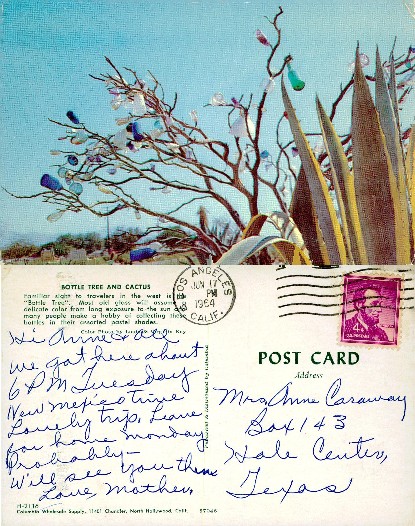 BOTTLE TREE AND CACTUS
Familiar sight to travelers in the west is the
"Bottle Tree". Most old glass will assume a
delicate color from long exposure to the sun and
many people make a hobby of collecting these
bottles in their assorted pastel shades.
Color Photo by
LOS ANGELES
JUN 17
PM
1964
CALIF.
4¢
Hi Anne & all
We got here about
6 PM Tuesday
New Mexico time
Lovely trip. Leave
for home Monday
Probably-
Will see you then
Love Mother,
POST CARD
Address
Mrs Anne Caraway
Box 143
Hale Center,
Texas
H-2116
Columbia Wholesale Supply, 11401 Chandler, North Hollywood, Calif.
57046